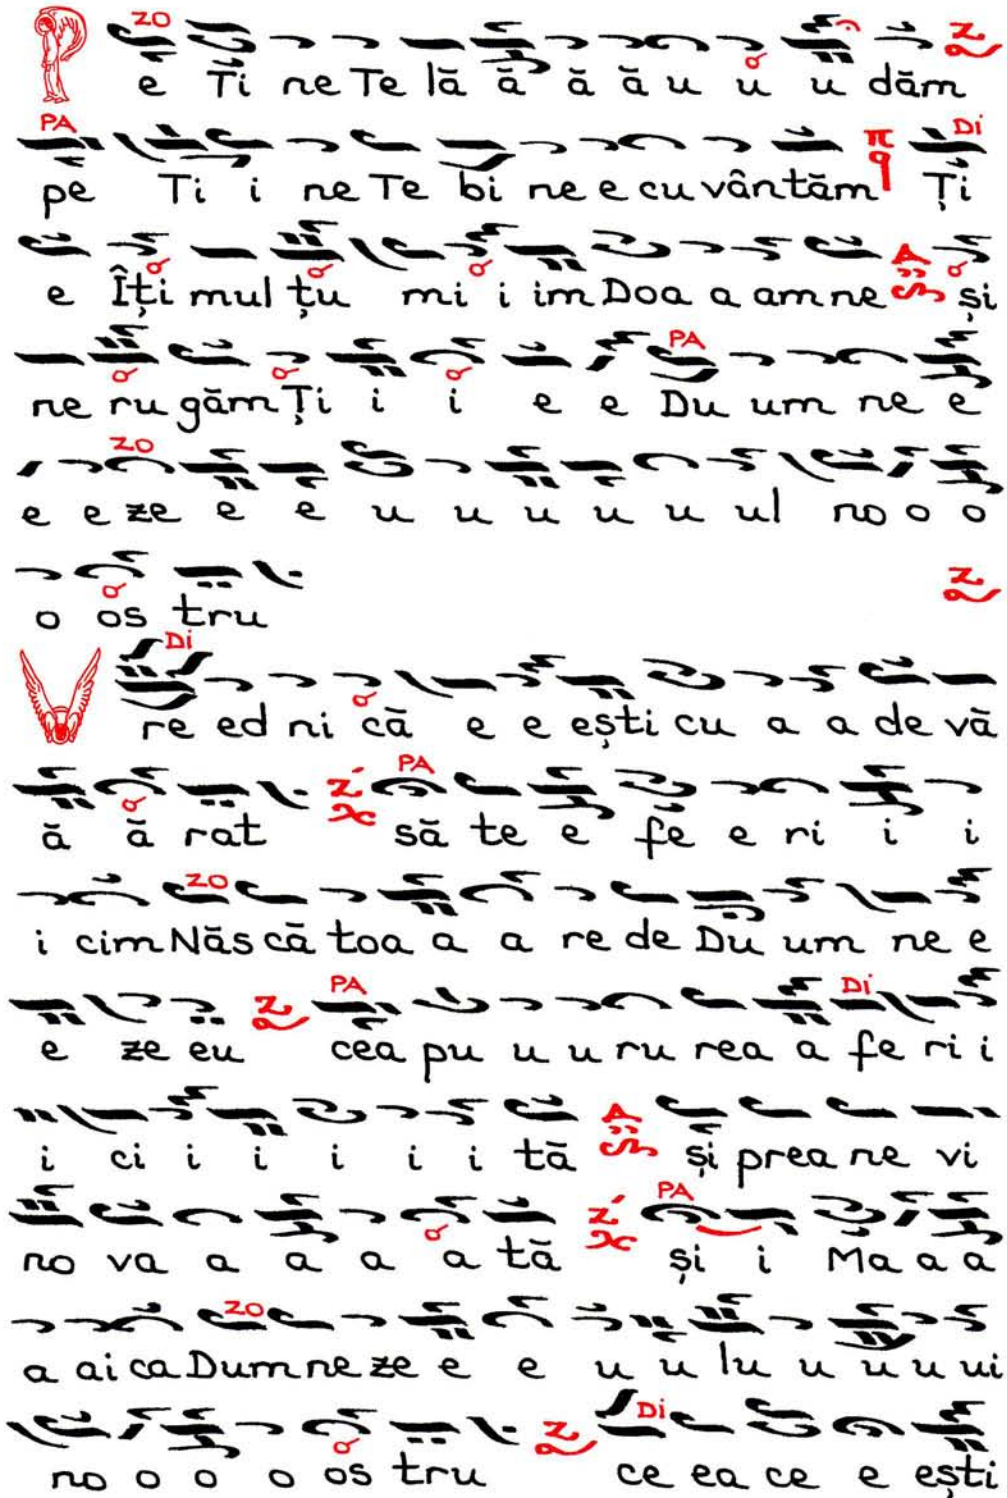 ZO
P e Ti ne Te lă ă ă ă u u u dăm
PA Di
pe Ti i ne Te bi ne e cu vântăm Ți
e Îți mul țu mi i im Doa a am ne și
PA
ne ru găm Ți i i e e Du um ne e
ZO
e e ze e e u u u u u ul no o o
o os tru
Di
V re ed ni că e e ești cu a a de vă
PA
ă ă rat să te e fe e ri i i
ZO
i cim Năs că toa a a re de Du um ne e
PA Di
e ze eu cea pu u u ru rea a fe ri i
i ci i i i i i tă și prea ne vi
PA
no va a a a a tă și i Ma a a
ZO
a ai ca Dum ne ze e e u u lu u u u ui
Di
no o o o os tru ce ea ce e ești